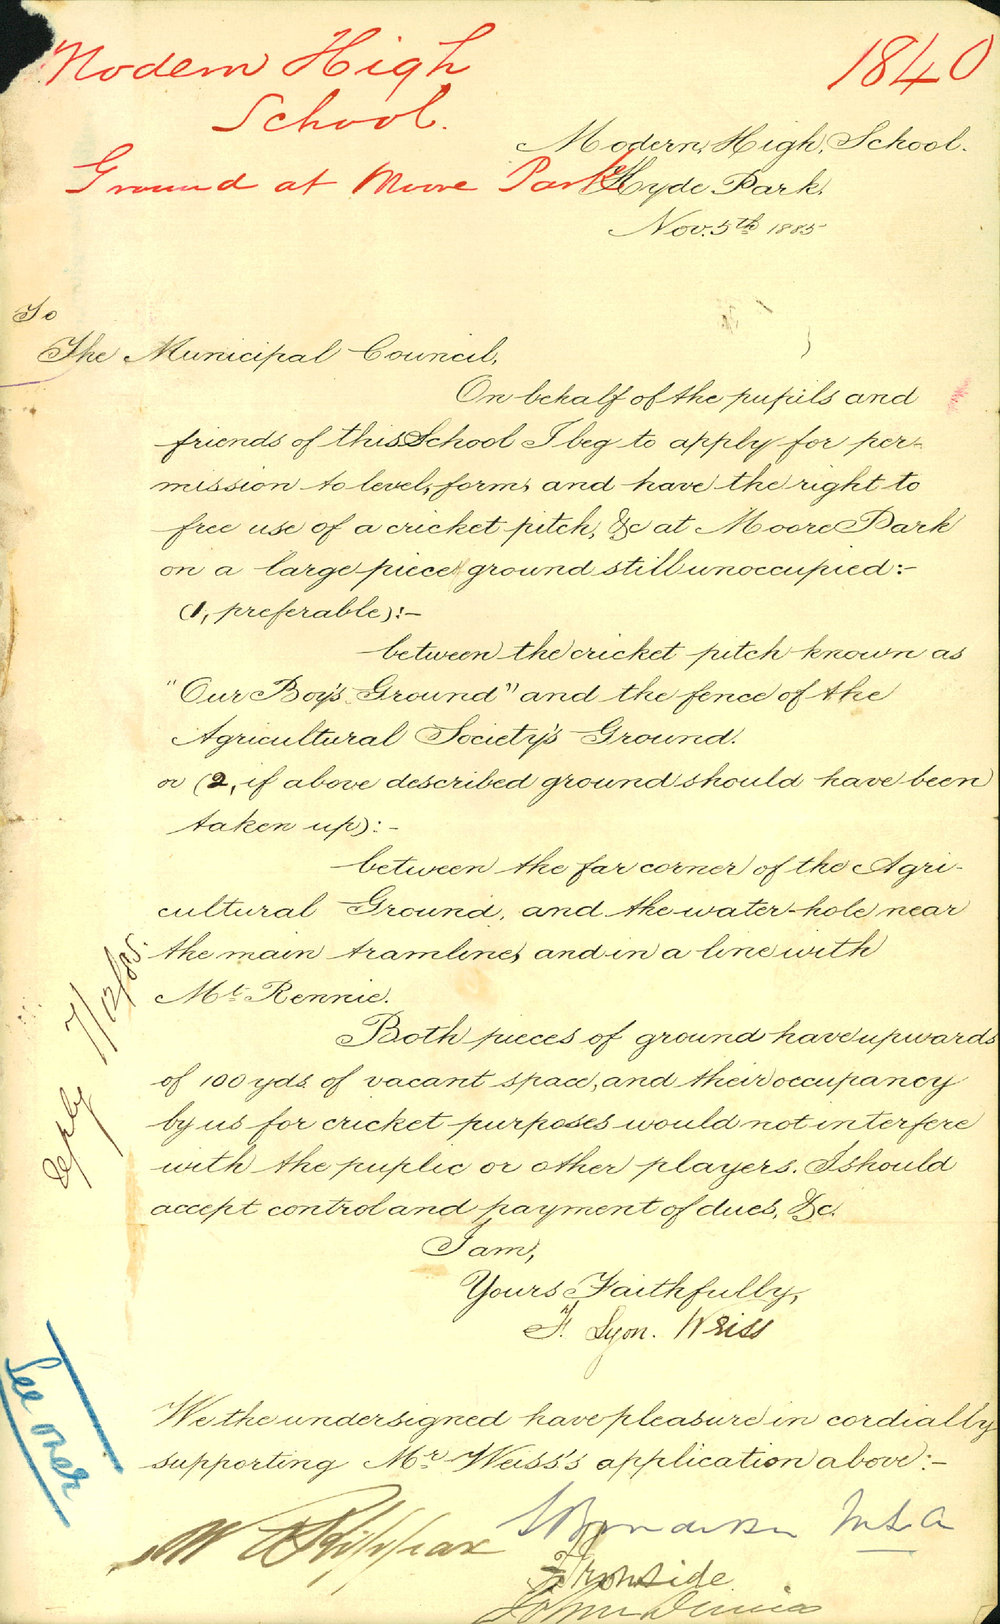 Modern High
School.
Ground at Moore Park
1840
Modern High School.
Hyde Park.
Nov. 5th 1885
To
The Municipal Council,
On behalf of the pupils and
friends of this School I beg to apply for per-
mission to level, form, and have the right to
free use of a cricket pitch, &c at Moore Park
on a large piece ground still unoccupied:-
(1, preferable):-
between the cricket pitch known as
"Our Boy's Ground" and the fence of the
Agricultural Society's Ground.
or (2, if above described ground should have been
taken up):-
between the far corner of the Agri-
cultural Ground, and the water-hole near
the main tramline, and in a line with
Mt Rennie.
Both pieces of ground have upwards
of 100 yds of vacant space, and their occupancy
by us for cricket purposes would not interfere
with the puplic or other players. I should
accept control and payment of dues, &c.
I am,
Yours Faithfully,
F. Lyon. Weiss
reply 7/12/85.
See over
We the undersigned have pleasure in cordially
supporting Mr Weiss's application above:-
M.L.A
Ironside
John